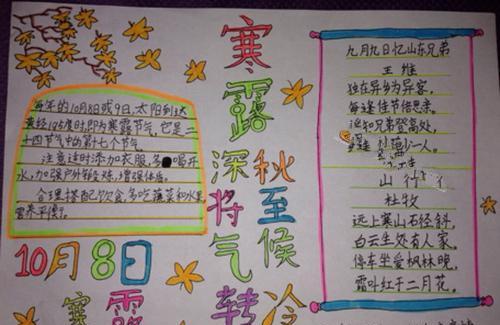 寒露
每年的10月8日或9日,太阳到达
黄经195度时,即为寒露节气,它是二
十四节气中的第十七个节气。
注意适时添加衣服,多喝开
水,加强户外锻炼,增强体质。
合理搭配饮食,多吃蔬菜和水果,
营养平衡。
10月8日
寒露
秋至候冷
深将气转
九月九日忆山东兄弟
王维
独在异乡为异客,
每逢佳节倍思亲。
遥知兄弟登高处,
少一人。
山行
杜牧
远上寒山石径斜,
白云生处有人家。
停车坐爱枫林晚,
霜叶红于二月花。